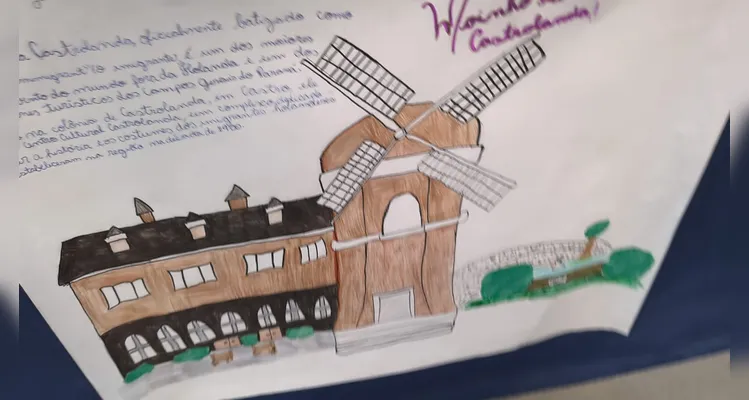 Moinho
Castrolanda!
Castrolanda, oficialmente batizado como
imigrante" (o imigrante) é um dos maiores
vento do mundo fora da Holanda e um dos
turísticos dos Campos Gerais do Paraná!
na colônia de Castrolanda, em Castro, ele
Centro Cultural Castrolanda, um complexo dedicado
a história e os costumes dos imigrantes holandeses
estabeleceram na região na década de 1950.